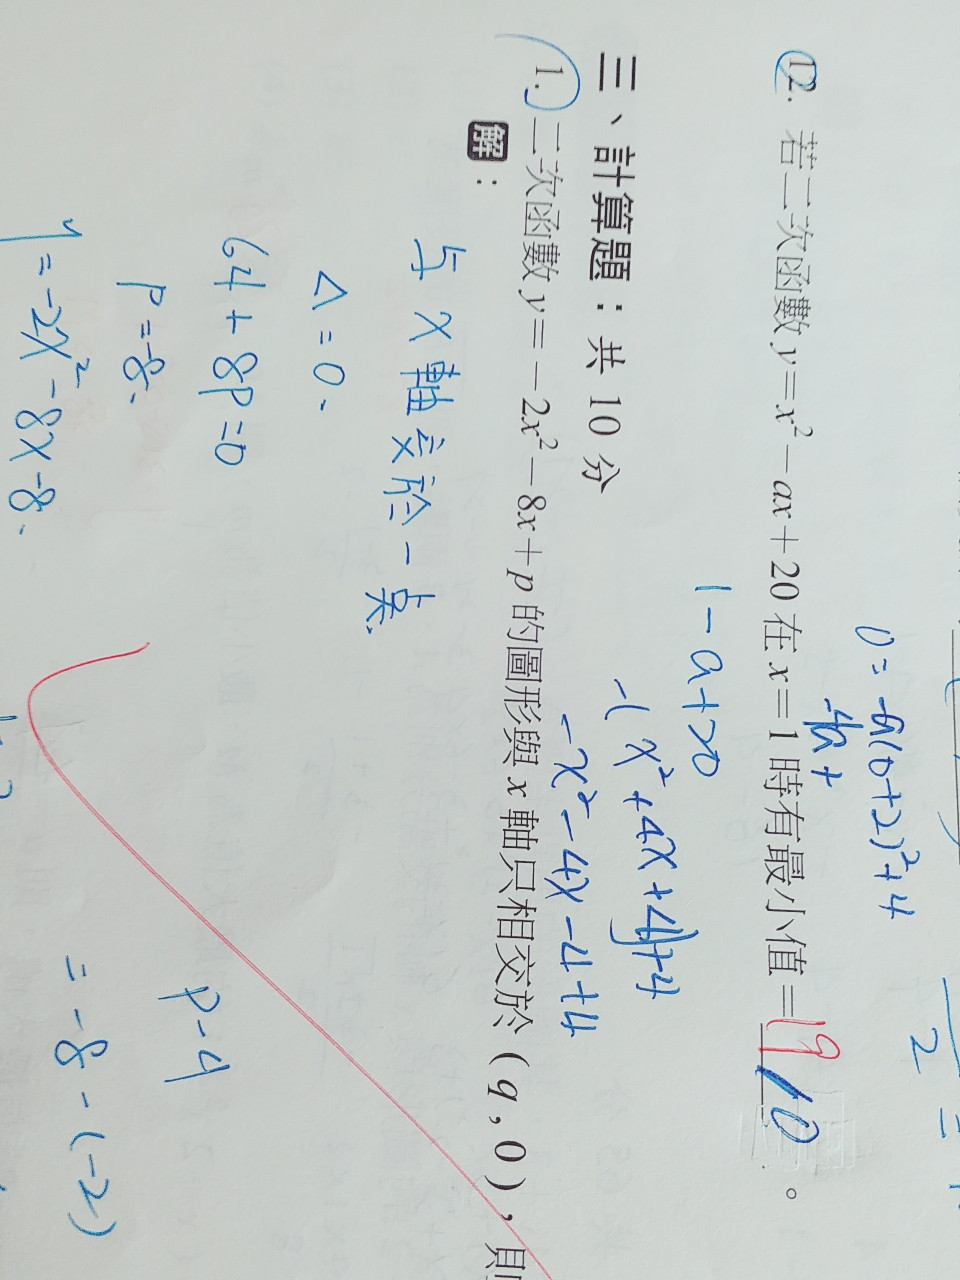 0=-a(0+2)²+4
-4a+
2
12. 若二次函數 y=x²-ax+20 在 x=1 時有最小值=19 10 。
1-a+20
-(x²+4x+4)+4
-x²-4x-4+4
三、計算題：共 10 分
1. 二次函數 y=-2x²-8x+p 的圖形與 x 軸只相交於 (q,0)，則
解：
与 x 軸交於一点.
Δ=0.
64+8P=0
P=-8.
y=-2x²-8x-8.
P-q
=-8-(-2)